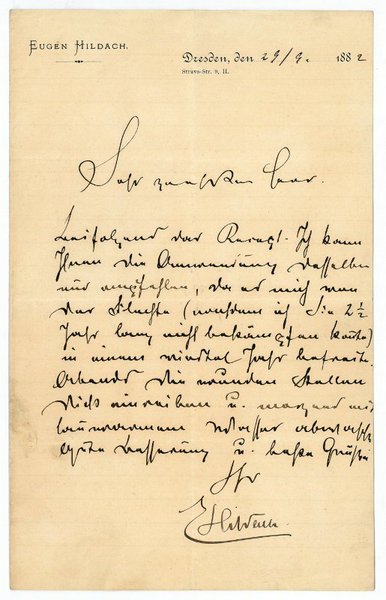 EUGEN HILDACH.
Dresden, den 29/9. 1882
Struve-Str. 9, II.
Sehr geehrter Herr.
Beifolgend das Recept. Ich kann
Ihnen die Anwendung desselben
nur empfehlen, da es mich von
der Flechte (nachdem ich sie 2 1/2
Jahr lang nicht bekämpfen konnte)
in einem viertel Jahr befreite.
Abends die wunden Stellen
dick einreiben u. morgens mit
lauwarmem Wasser abwaschen
Gute Besserung u. beste Grüße
Ihr
EHildach.